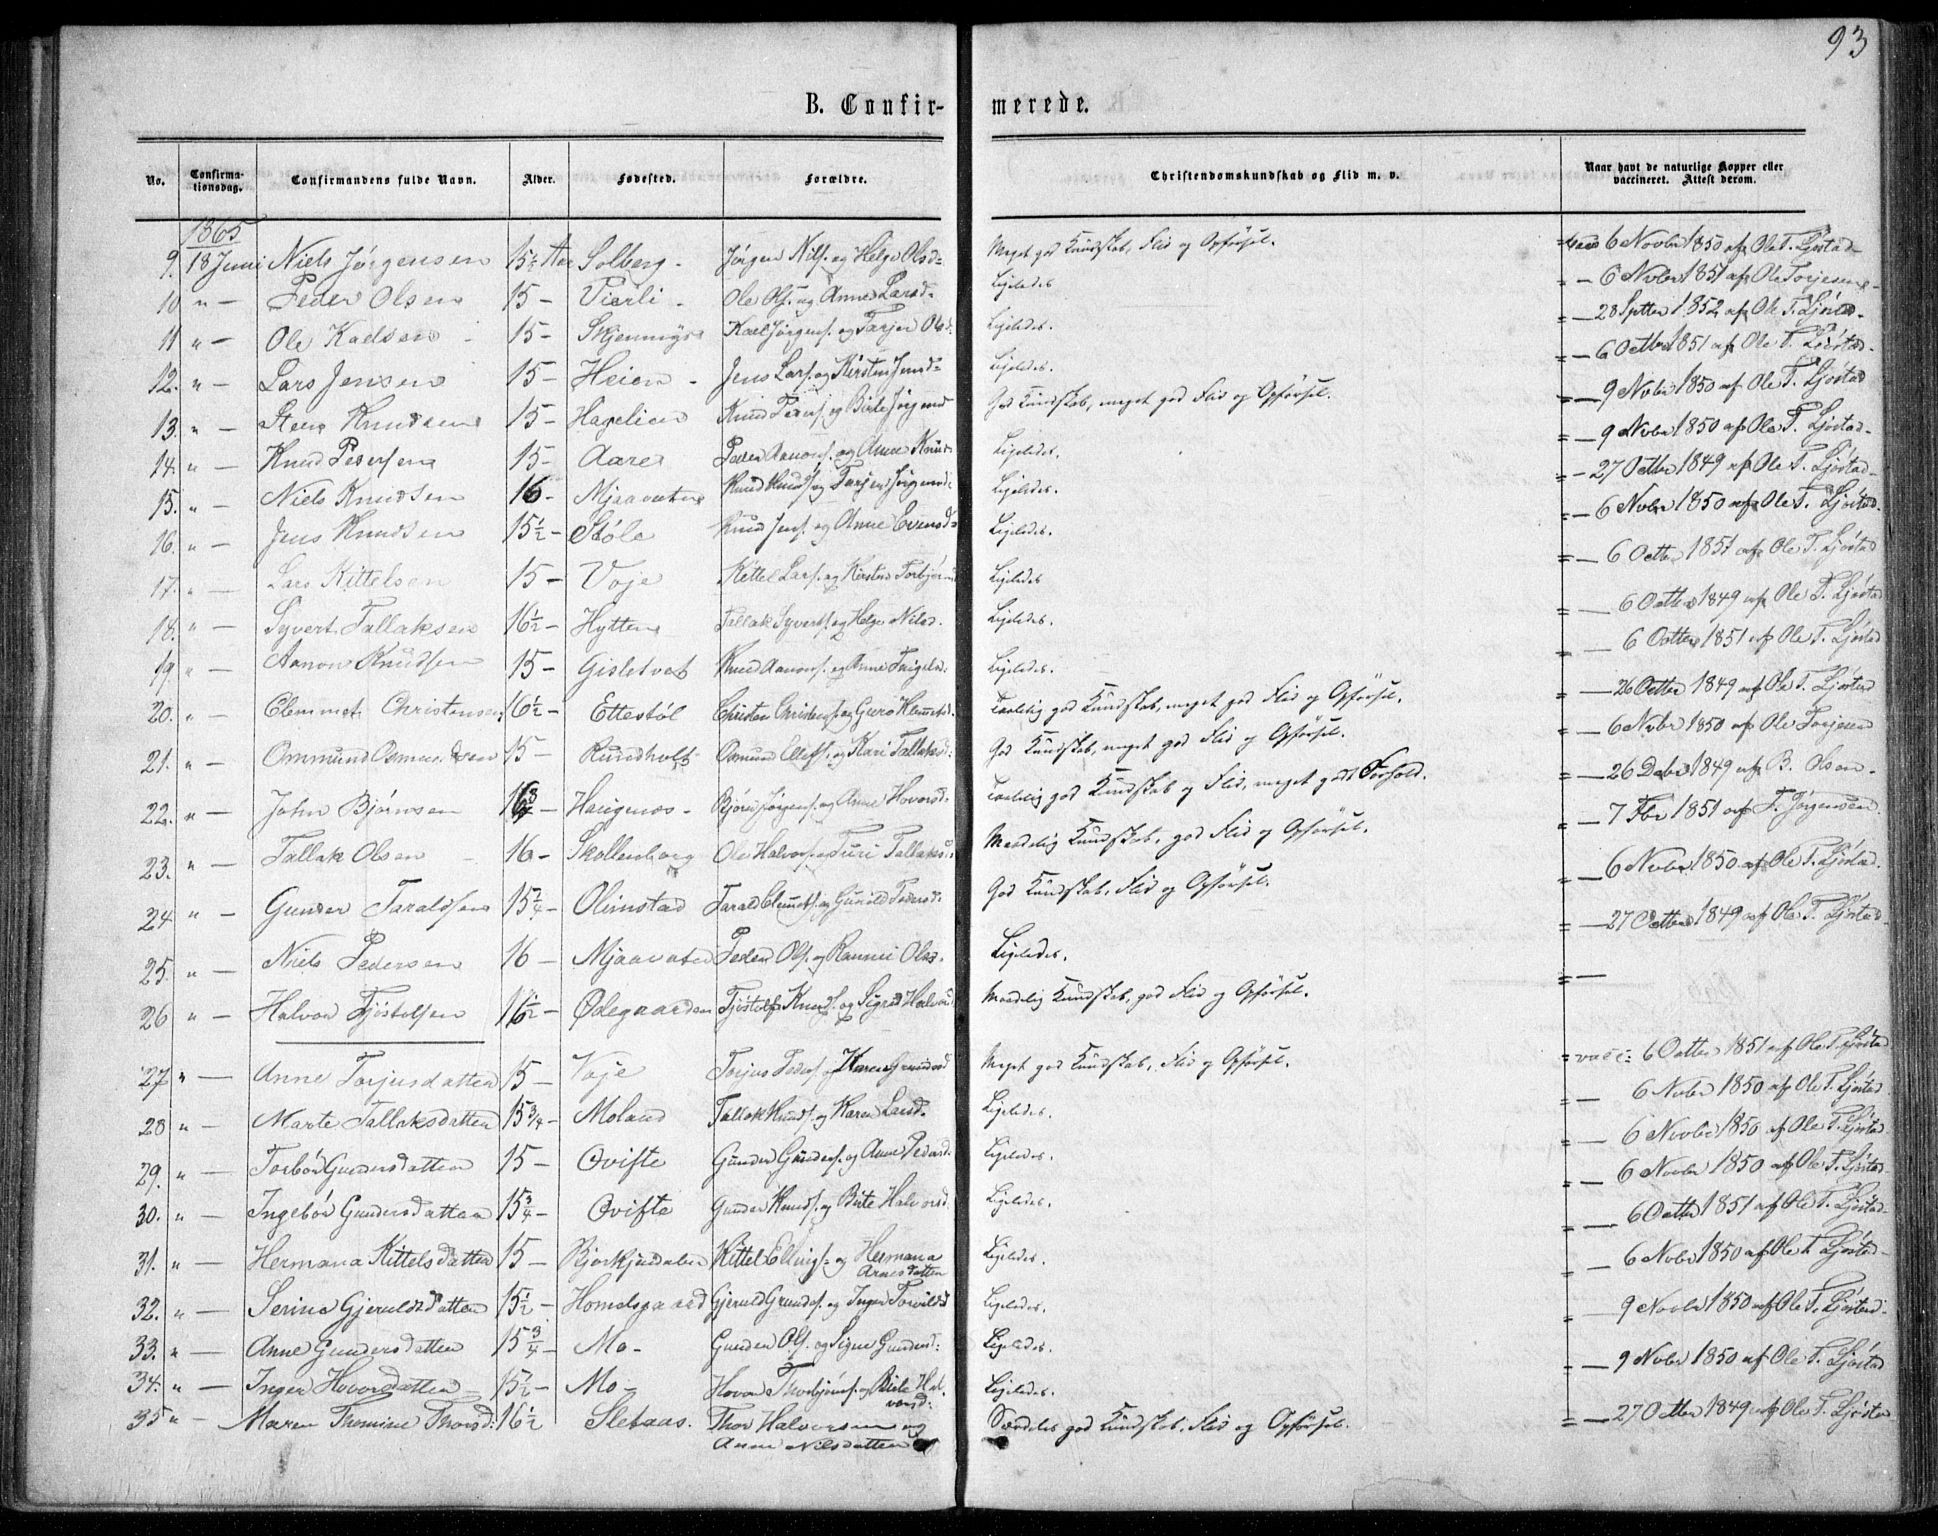 93
B. Confir- merede.
No. Confirma-tionsdag. Confirmandens fulde Navn. Alder. Fødested. Forældre. Christendomskundskab og Flid m. v. Naar havt de naturlige Kopper eller vaccineret. Attest derom.
1865
9. 18 Juni Niels Jørgensen 15½ Aar Solberg - Jørgen Nilss. og Helge Olsd= Meget god Kundskab, Flid og Opførsel. 6 Novbr 1850 af Ole T. Ljøstad
10 " — Peder Olsen 15 - Vierli - Ole Ols. og Anne Larsd= Ligeledes = — 6 Novbr 1851 af Ole Torjesen
11 " — Ole Kaelsen 15 - Kael Jørgens. og Tarjer Olsd: Ligeledes. = — 28 Septbr 1852 af Ole T. Ljøstad
12. " — Lars Jensen 15 - Heien - Jens Lars. og Kirsten Jensd= Ligeledes. = — 6 Octbr 1851 af Ole T. Ljøstad
13. " — Knudsen 15 - Hagelien Knud Peders. og Birte Jørgensd God Kundskab, meget god Flid og Opførsel. = — 9 Novbr 1850 af Ole T. Ljøstad
14. " — Knud Pedersen 15 - Aare Peder Aanons. og Anne Knuds Ligeledes. = — 9 Novbr 1850 af Ole T. Ljøstad
15. " — Niels Knudsen 16 - Mjaavatn Knud Knuds. og Tarjer Jørgensd: Ligeledes. = — 27 Octbr 1849 af Ole T. Ljøstad
16. " — Jens Knudsen 15½ - Støle Knud Jens. og Anne Evensd= Ligeledes. = — 6 Novbr 1850 af Ole T. Ljøstad
17. " — Lars Kittelsen 15 - Voje Kettel Lars. og Kirsten Torbjørnsd Ligeledes = — 6 Octbr 1851 af Ole T. Ljøstad
18. " — Syvert Tallaksen 16½ - Hytten Tallak Syverts. og Helge Nilsd. Ligeledes. = — 6 Octbr 1849 af Ole T. Ljøstad
19 " — Aanon Knudsen 15 - Gisletvet Knud Aanons. og Anne Ligeledes. = — 6 Octbr 1851 af Ole T. Ljøstad
20. " — Clemmet Christensen 16½ - Ettestøl Christen Christens. og Guro Klemetsd. Taalelig god Kundskab, meget god Flid og Opførsel. = — 26 Octbr 1849 af Ole T. Ljøstad
21. " — Ommund Osmundsen 15 - Rundholt Osmund Ellefs. og Kari Tallaksd: God Kundskab, meget god Flid og Opførsel. = — 6 Novbr 1850 af Ole Torjesen
22. " — John Bjørnsen 16¾ - Haugenæs - Bjørn Jørgens. og Anne Hovorsd: Taalelig god Kundskab og Flid, meget godt Forhold. = — 26 Debr 1849 af B. Olsen
23. " — Tallak Olsen 16 - Skollenborg Ole Halvors. og Turi Tallaksd: Maadelig Kundskab, god Flid og Opførsel. = — 7 Fbr 1851 af T. Jørgensen
24 " — Gunder Taraldsen 15¾ - Olimstad Tarald Clemets. og Gunild Pedersd: God Kundskab, Flid og Opførsel. = — 6 Novbr 1850 af Ole T. Ljøstad
25 " — Niels Pedersen 16 - Mjaavatn Peder Ols. og Rannei Olsd. Ligeledes. = — 27 Octbr 1849 af Ole T. Ljøstad
26 " — Halvor Tjøstolsen 16½ - Ødegaarden Tjøstolf Knuds. og Sigrid Halvorsd Maadelig Kundskab, god Flid og Opførsel. = —
27 " — Anne Torjusdatter 15 - Voje Torjus Peders. og Karen Gundersd Meget god Kundskab, Flid og Opførsel. = vacc: 6 Octbr 1851 af Ole T. Ljøstad
28 " — Marte Tallaksdatter 15¾ - Moland Tallak Knuds. og Karen Larsd. Ligeledes. = — 6 Novbr 1850 af Ole T. Ljøstad
29. " — Torbør Gundersdatter 15 - Ovifte Gunder Gunders. og Anne Pedersd. Ligeledes. = — 6 Novbr 1850 af Ole T. Ljøstad
30. " — Ingebør Gundersdatter 15¾ - Ovifte Gunder Knuds. og Birte Halvorsd. Ligeledes. = — 6 Novbr 1850 af Ole T. Ljøstad
31. " — Hermana Kittelsdatter 15 - Bjorkjendalen Kittel Ellings. og Hermana Arnesdatter Ligeledes. = — 6 Octbr 1851 af Ole T. Ljøstad
32. " — Serine Gjeruldsdatter 15½ - Homdsgaard Gjeruld Gunders. og Inger Torvildsd Ligeledes. = — 6 Novbr 1850 af Ole T. Ljøstad
33. " — Anne Gundersdatter 15¾ - Mo - Gunder Ols. og Signe Gundersd: Ligeledes. = — 9 Novbr 1850 af Ole T. Ljøstad
34. " — Inger Hovorsdatter 15½ - Mo - Hovor Thorbjørns. og Birte Halvorsd: Ligeledes. = — 9 Novbr 1850 af Ole T. Ljøstad
35 " — Maren Thomine Thorsd: 16½ Sletaas. Thor Halversen og Anne Nilsdatter Særdeles god Kundskab, Flid og Opførsel. = — 27 Octbr 1849 af Ole T. Ljøstad